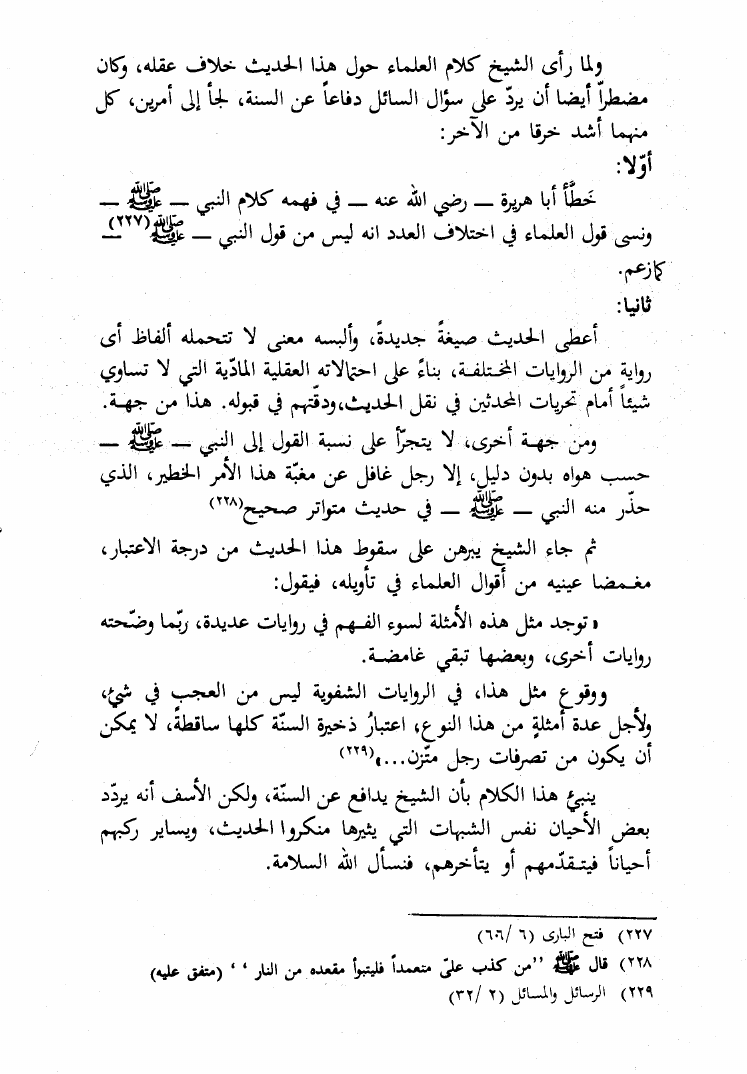 ولما رأى الشيخ كلام العلماء حول هذا الحديث خلاف عقله، وكان
مضطراً أيضا أن يردّ على سؤال السائل دفاعاً عن السنة، لجأ إلى أمرين، كل
منهما أشد خرقا من الآخر:
أوّلا:
خَطَّأ أبا هريرة ــ رضي الله عنه ــ في فهمه كلام النبي ــ ﷺ ــ
ونسى قول العلماء في اختلاف العدد انه ليس من قول النبي ــ ﷺ(٢٢٧) ــ
كازعم.
ثانيا:
أعطى الحديث صيغةً جديدةً، وألبسه معنى لا تتحمله ألفاظ أى
رواية من الروايات المختلفة، بناءً على احتمالاته العقلية المادّية التي لا تساوي
شيئاً أمام تحريات المحدثين في نقل الحديث،ودقّتهم في قبوله. هذا من جهة.
ومن جهة أخرى، لا يتجرّأ على نسبة القول إلى النبي ــ ﷺ ــ
حسب هواه بدون دليل، إلا رجل غافل عن مغبّة هذا الأمر الخطير، الذي
حذّر منه النبي ــ ﷺ ــ في حديث متواتر صحيح(٢٢٨)
ثم جاء الشيخ يبرهن على سقوط هذا الحديث من درجة الاعتبار،
مغمضا عينيه من أقوال العلماء في تأويله، فيقول:
«توجد مثل هذه الأمثلة لسوء الفهم في روايات عديدة، ربّما وضّحته
روايات أخرى، وبعضها تبقي غامضة.
ووقوع مثل هذا، في الروايات الشفوية ليس من العجب في شئ،
ولأجل عدة أمثلةٍ من هذا النوع، اعتبارُ ذخيرة السنّة كلها ساقطةً، لا يمكن
أن يكون من تصرفات رجل متّزن...»(٢٢٩)
ينبئ هذا الكلام بأن الشيخ يدافع عن السنة، ولكن الأسف أنه يردّد
بعض الأحيان نفس الشبهات التي يثيرها منكروا الحديث، ويساير ركبهم
أحياناً فيتقدّمهم أو يتأخرهم، فنسأل الله السلامة.
٢٢٧) فتح البارى (٦/ ٦٠٦)
٢٢٨) قال ﷺ ”من كذب علىّ متعمداً فليتبوأ مقعده من النار ‘ ‘ (متفق عليه)
٢٢٩) الرسائل والمسائل (٢/ ٣٢)